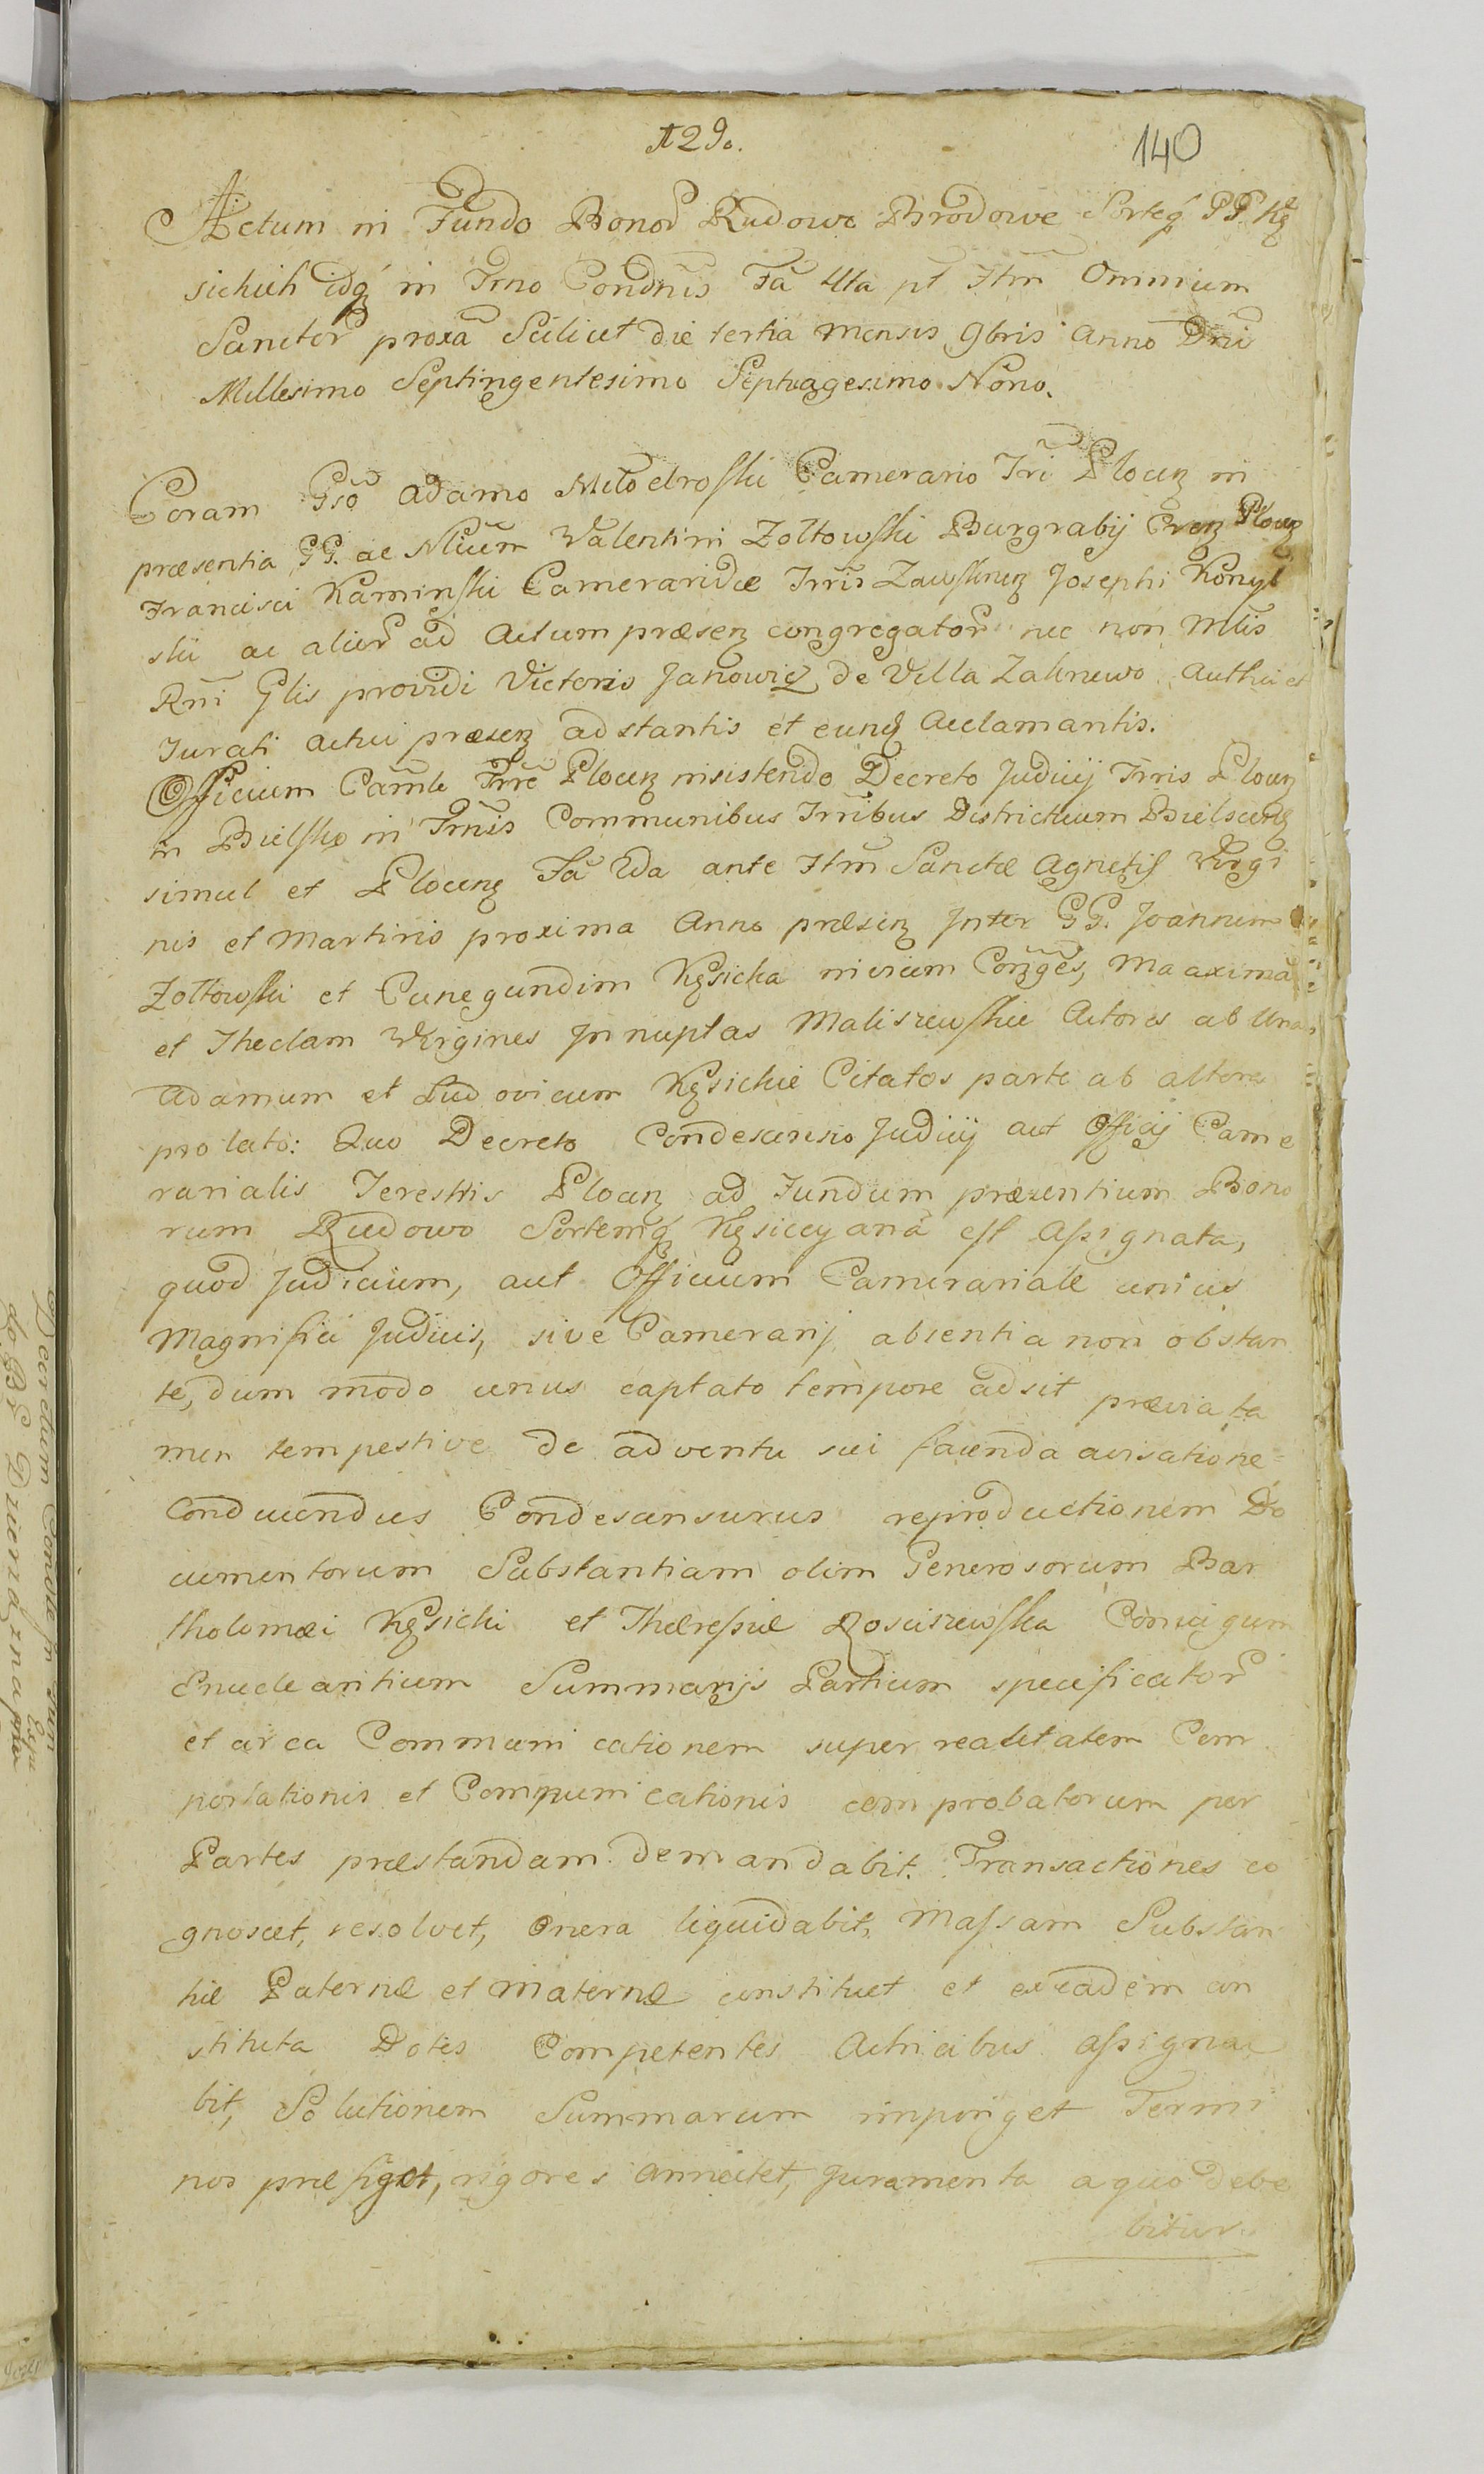 129.
140
Actum in Fundo Bonor Rudowo Brodowe Sorteq GG. Kę
sickich idq in Trno Condnis Fa 4ta pt Ftm Omnium
Sanctor proxa Scilicet die tertia mensis 9bris Anno Dni
Millesimo Septingentesimo Septuagesimo Nono.
Coram Gso Adamo Milodroski Camerario Tri Plocen in
præsentia GG. ac Nlium Valentini Zoltowski Burgrabij Cren Plocen
Francisci Kaminski Cameraridæ Trris Zawskrnen Josephi Konyl
ski ac alior ad Actum præsen congregator nec non Mtlis
Rni Glis providi Victoris Janowicz de Villa Zalinewo Authci et
Jurati actui præsen adstantis et eunq Acclamantis.
Officium Camle Trre Plocen insistendo Decreto Judicij Trris Plocen
in Bielsko in Trnis Communibus Trribus Districtuum Bielscen
simul et Plocen Fa 2da ante Ftm Sanctæ Agnetis Virgi
nis et Martiris proxima Anno præsen Inter GG. Joannem
Zoltowski et Cunegundim Kęsicka invicem Conges, Maaxima
et Theclam Virgines Innuptas Maliszewskie Actores ab Una
Adamum et Ludovicum Kęsickie Citatos parte ab altera
prolato: Quo Decreto Condescensio Judicij aut Officij Came
rarialis Terestris Plocen ad Fundum præsentium Bono
rum Rudowo Sortemq Kęsiccyana est Assignata,
quod Judicium, aut Officium Camerariale unius
Magnifici Judicis, sive Camerarij absentia non obstan
te, dum modo unus captato tempore adsit prævia ta
men tempestive de adventu sui facienda avisatione
Conducendus Condesansurus reproductionem Do
cumentorum Substantiam olim Generosorum Bar
tholomæi Kęsicki et Theressiæ Rosciszewska Coniugum
Enucleantium Summarijs Partium specificator
et circa Communicationem super realitatem Com
portationis et Communicationis comprobatorum per
Partes præstandam demandabit. Transactiones co
gnoscet, resolvet, Onera liquidabit, Massam Substan
tiæ Paternæ et Maternæ constituet et ex eadem con
stituta Dotes Competentes Actricibus assigna
bit, Solutionem Summarum impinget Termi
nos præfiget, rigores Annectet, Juramenta a quo debe
bitur.